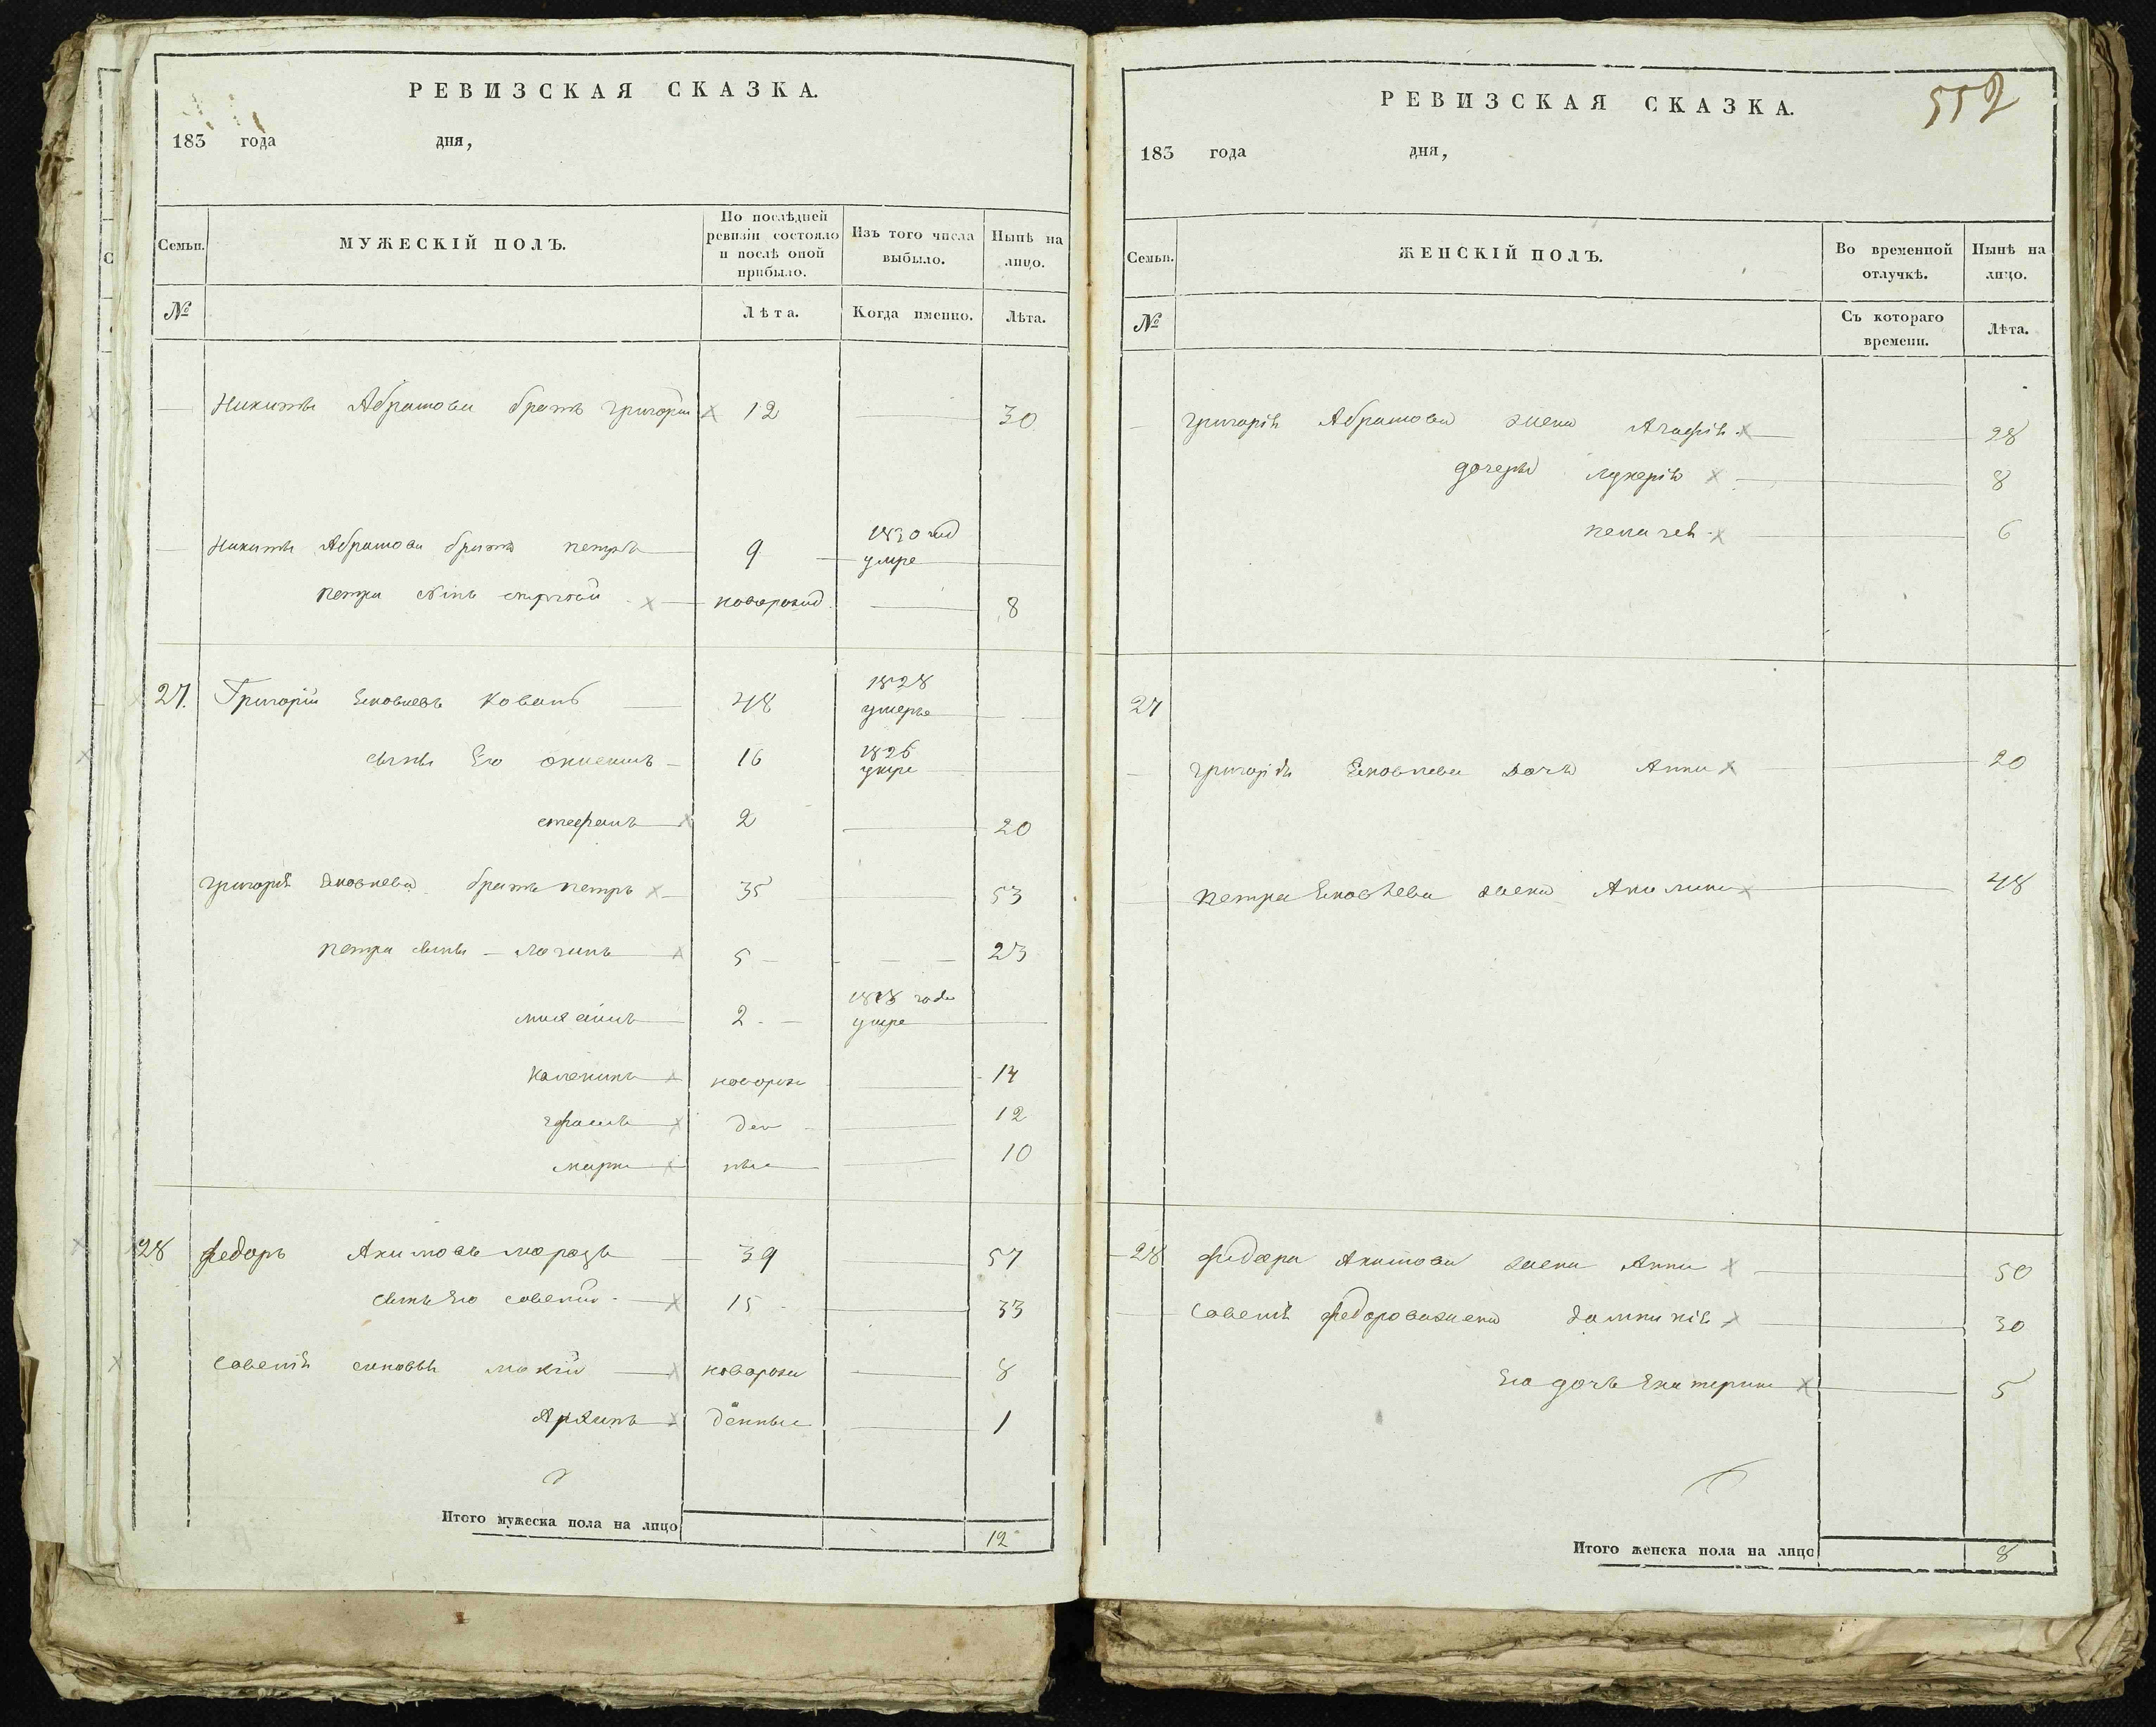 РЕВИЗСКАЯ СКАЗКА.
183 года дня,
Семьи. МУЖЕСКІЙ ПОЛЪ. По послѣдней ревизіи состояло и послѣ оной прибыло. Изъ того числа выбыло. Нынѣ на лицо.
№ Лѣта. Когда именно. Лѣта.
Никиты Абрамова братъ григорій 12 30
Никиты Абрамова братъ петръ 9 1830 год умре
петра сынъ новорожд 8
27. Григорій Яковлевъ Коваль 48 1828 умерье
сыны Его 16 1826 умре
стефанъ 2 20
григорія Яковлева братъ петръ 35 53
петра сыны логинъ 5 23
михаилъ 2 1818 года умре
каленикъ новорож 14
ден 12
марко ные 10
28 федоръ Акимовъ морозъ 39 57
сынъ Его савелій 15 33
савелія сыновья мокій новорож 8
Архипъ денные 1
Итого мужеска пола на лицо 12
552
РЕВИЗСКАЯ СКАЗКА.
183 года дня,
Семьи. ЖЕНСКІЙ ПОЛЪ. Во временной отлучкѣ. Нынѣ на лицо.
№ Съ котораго времени. Лѣта.
григорія Абрамова жена Агафія 28
дочеры лукерія 8
пелагея 6
27
григорія Яковлева дочь Анна 20
петра Яковлева жена Акилина 48
28 федора Акимова жена Анна 50
савелія федорова жена домникія 30
Его дочь Екатерина 5
Итого женска пола на лицо 8